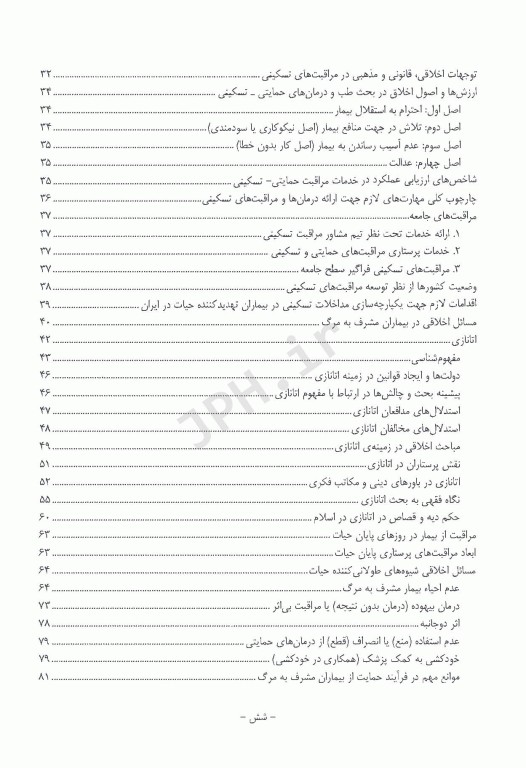 توجهات اخلاقی، قانونی و مذهبی در مراقبت‌های تسکینی ........ ۳۲
ارزش‌ها و اصول اخلاق در بحث طب و درمان‌های حمایتی ـ تسکینی ........ ۳۴
اصل اول: احترام به استقلال بیمار ........ ۳۴
اصل دوم: تلاش در جهت منافع بیمار (اصل نیکوکاری یا سودمندی) ........ ۳۴
اصل سوم: عدم آسیب رساندن به بیمار (اصل کار بدون خطا) ........ ۳۵
اصل چهارم: عدالت ........ ۳۵
شاخص‌های ارزیابی عملکرد در خدمات مراقبت حمایتی- تسکینی ........ ۳۵
چارچوب کلی مهارت‌های لازم جهت ارائه درمان‌ها و مراقبت‌های تسکینی ........ ۳۶
مراقبت‌های جامعه ........ ۳۷
۱. ارائه خدمات تحت نظر تیم مشاور مراقبت تسکینی ........ ۳۷
۲. خدمات پرستاری مراقبت‌های حمایتی و تسکینی ........ ۳۷
۳. مراقبت‌های تسکینی فراگیر سطح جامعه ........ ۳۷
وضعیت کشورها از نظر توسعه مراقبت‌های تسکینی ........ ۳۸
اقدامات لازم جهت یکپارچه‌سازی مداخلات تسکینی در بیماران تهدیدکننده حیات در ایران ........ ۳۹
مسائل اخلاقی در بیماران مشرف به مرگ ........ ۴۰
اتانازی ........ ۴۲
مفهوم‌شناسی ........ ۴۳
دولت‌ها و ایجاد قوانین در زمینه اتانازی ........ ۴۶
پیشینه بحث و چالش‌ها در ارتباط با مفهوم اتانازی ........ ۴۶
استدلال‌های مدافعان اتانازی ........ ۴۷
استدلال‌های مخالفان اتانازی ........ ۴۸
مباحث اخلاقی در زمینه‌ی اتانازی ........ ۴۹
نقش پرستاران در اتانازی ........ ۵۱
اتانازی در باورهای دینی و مکاتب فکری ........ ۵۲
نگاه فقهی به بحث اتانازی ........ ۵۵
حکم دیه و قصاص در اتانازی در اسلام ........ ۶۰
مراقبت از بیمار در روزهای پایان حیات ........ ۶۳
ابعاد مراقبت‌های پرستاری پایان حیات ........ ۶۳
مسائل اخلاقی شیوه‌های طولانی‌کننده حیات ........ ۶۴
عدم احیاء بیمار مشرف به مرگ ........ ۶۴
درمان بیهوده (درمان بدون نتیجه) یا مراقبت بی‌اثر ........ ۷۳
اثر دوجانبه ........ ۷۸
عدم استفاده (منع) یا انصراف (قطع) از درمان‌های حمایتی ........ ۷۹
خودکشی به کمک پزشک (همکاری در خودکشی) ........ ۷۹
موانع مهم در فرآیند حمایت از بیماران مشرف به مرگ ........ ۸۱
- شش -
JPH.ir